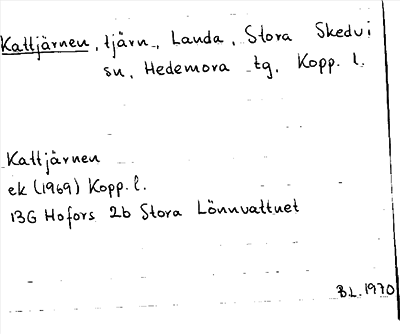 Kattjärnen, tjärn, Landa, Stora Skedvi
sn, Hedemora tg, Kopp. l.
Kattjärnen
ek (1969) Kopp. l.
13G Hofors 2b Stora Lönnvattnet
BL. 1970